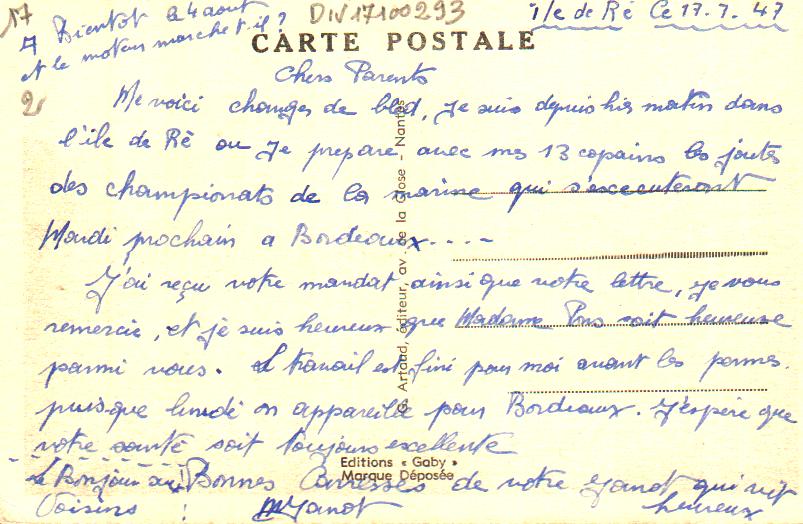 17
A Bientot le 4 aout
et le moteur marche t-il ?
DIV17100293
Ile de Ré Ce 17.7.47
CARTE POSTALE
2
Chers Parents
Me voici changer de bled, je suis depuis hier matin dans
l'île de Ré ou je prepare avec mes 13 copains les joutes
des championats de la marine qui s'excecuteront
Mardi prochain a Bordeaux....-
J'ai reçu votre mandat ainsi que votre lettre, je vous
remercie, et je suis heureux que Madame Pons soit heureuse
parmi vous. Le travail est fini pour moi avant les permes.
puisque lundi on appareille pour Bordeaux. J'espère que
votre santé soit toujours excellente
Le Bonjour aux Voisins !
Bonnes Carresses de votre Yanot qui vit
heureux
Yanot
G. Artaud, éditeur, av. de la Close - Nantes
Editions « Gaby »
Marque Déposée